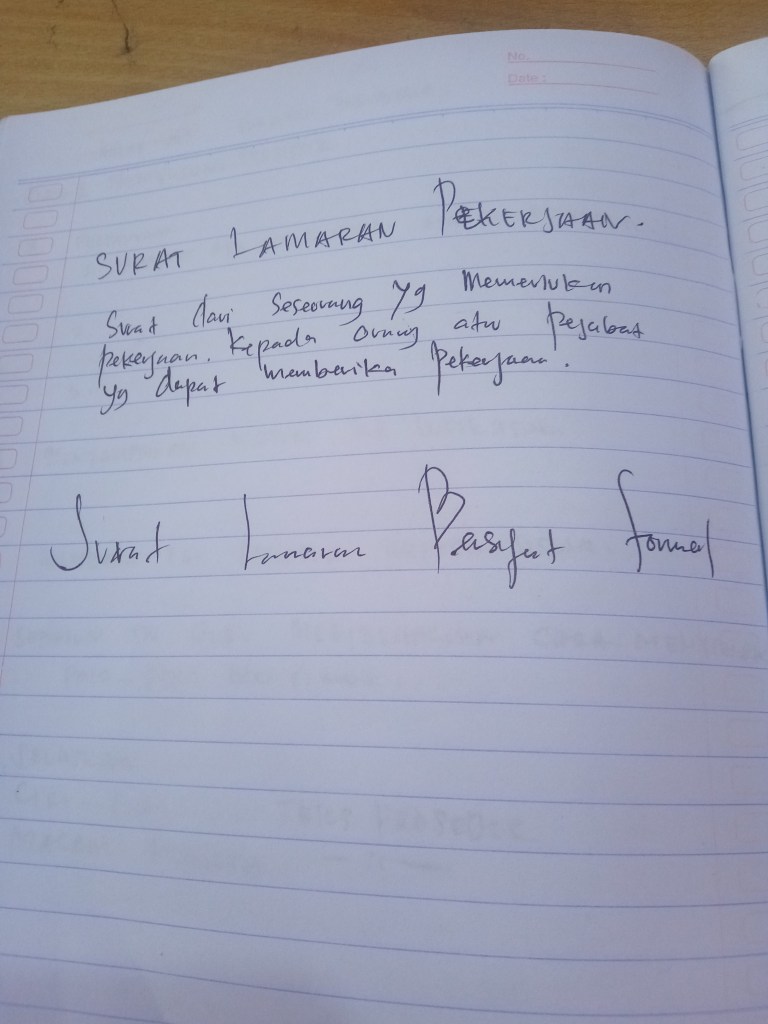 No.
Date:
SURAT LAMARAN PEKERJAAN.
Surat dari seseorang yg memerlukan
pekerjaan. kepada orang atu pejabat
yg dapat memberika pekerjaan.
Surat Lamaran Bersifat formal